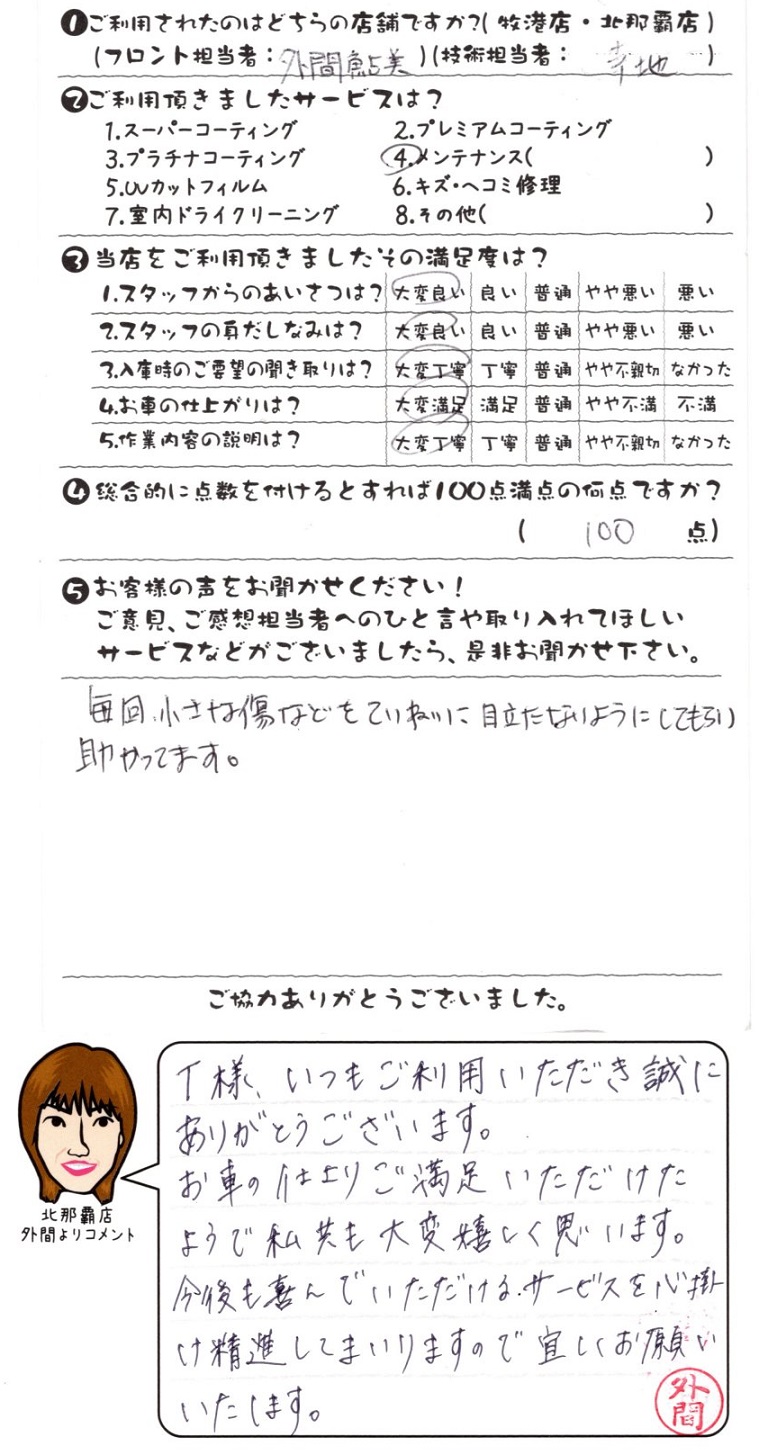 ❶ご利用されたのはどちらの店舗ですか?(牧港店・北那覇店)
(フロント担当者:外間鮎美)(技術担当者:幸地)
❷ご利用頂きましたサービスは?
1.スーパーコーティング 2.プレミアムコーティング
3.プラチナコーティング 4.メンテナンス( )
5.UVカットフィルム 6.キズ・ヘコミ修理
7.室内ドライクリーニング 8.その他( )
❸当店をご利用頂きましたその満足度は?
1.スタッフからのあいさつは? 大変良い 良い 普通 やや悪い 悪い
2.スタッフの身だしなみは? 大変良い 良い 普通 やや悪い 悪い
3.入庫時のご要望の聞き取りは? 大変丁寧 丁寧 普通 やや不親切 なかった
4.お車の仕上がりは? 大変満足 満足 普通 やや不満 不満
5.作業内容の説明は? 大変丁寧 丁寧 普通 やや不親切 なかった
❹総合的に点数を付けるとすれば100点満点の何点ですか?
( 100 点)
❺お客様の声をお聞かせください!
ご意見、ご感想担当者へのひと言や取り入れてほしい
サービスなどがございましたら、是非お聞かせ下さい。
毎回、小さな傷などをていねいに目立たないようにしてもらい
助かってます。
ご協力ありがとうございました。
T様、いつもご利用いただき誠に
ありがとうございます。
お車の仕上りご満足いただけた
ようで私共も大変嬉しく思います。
今後も喜んでいただけるサービスを心掛
け精進してまいりますので宜しくお願い
いたします。
外間
北那覇店
外間よりコメント